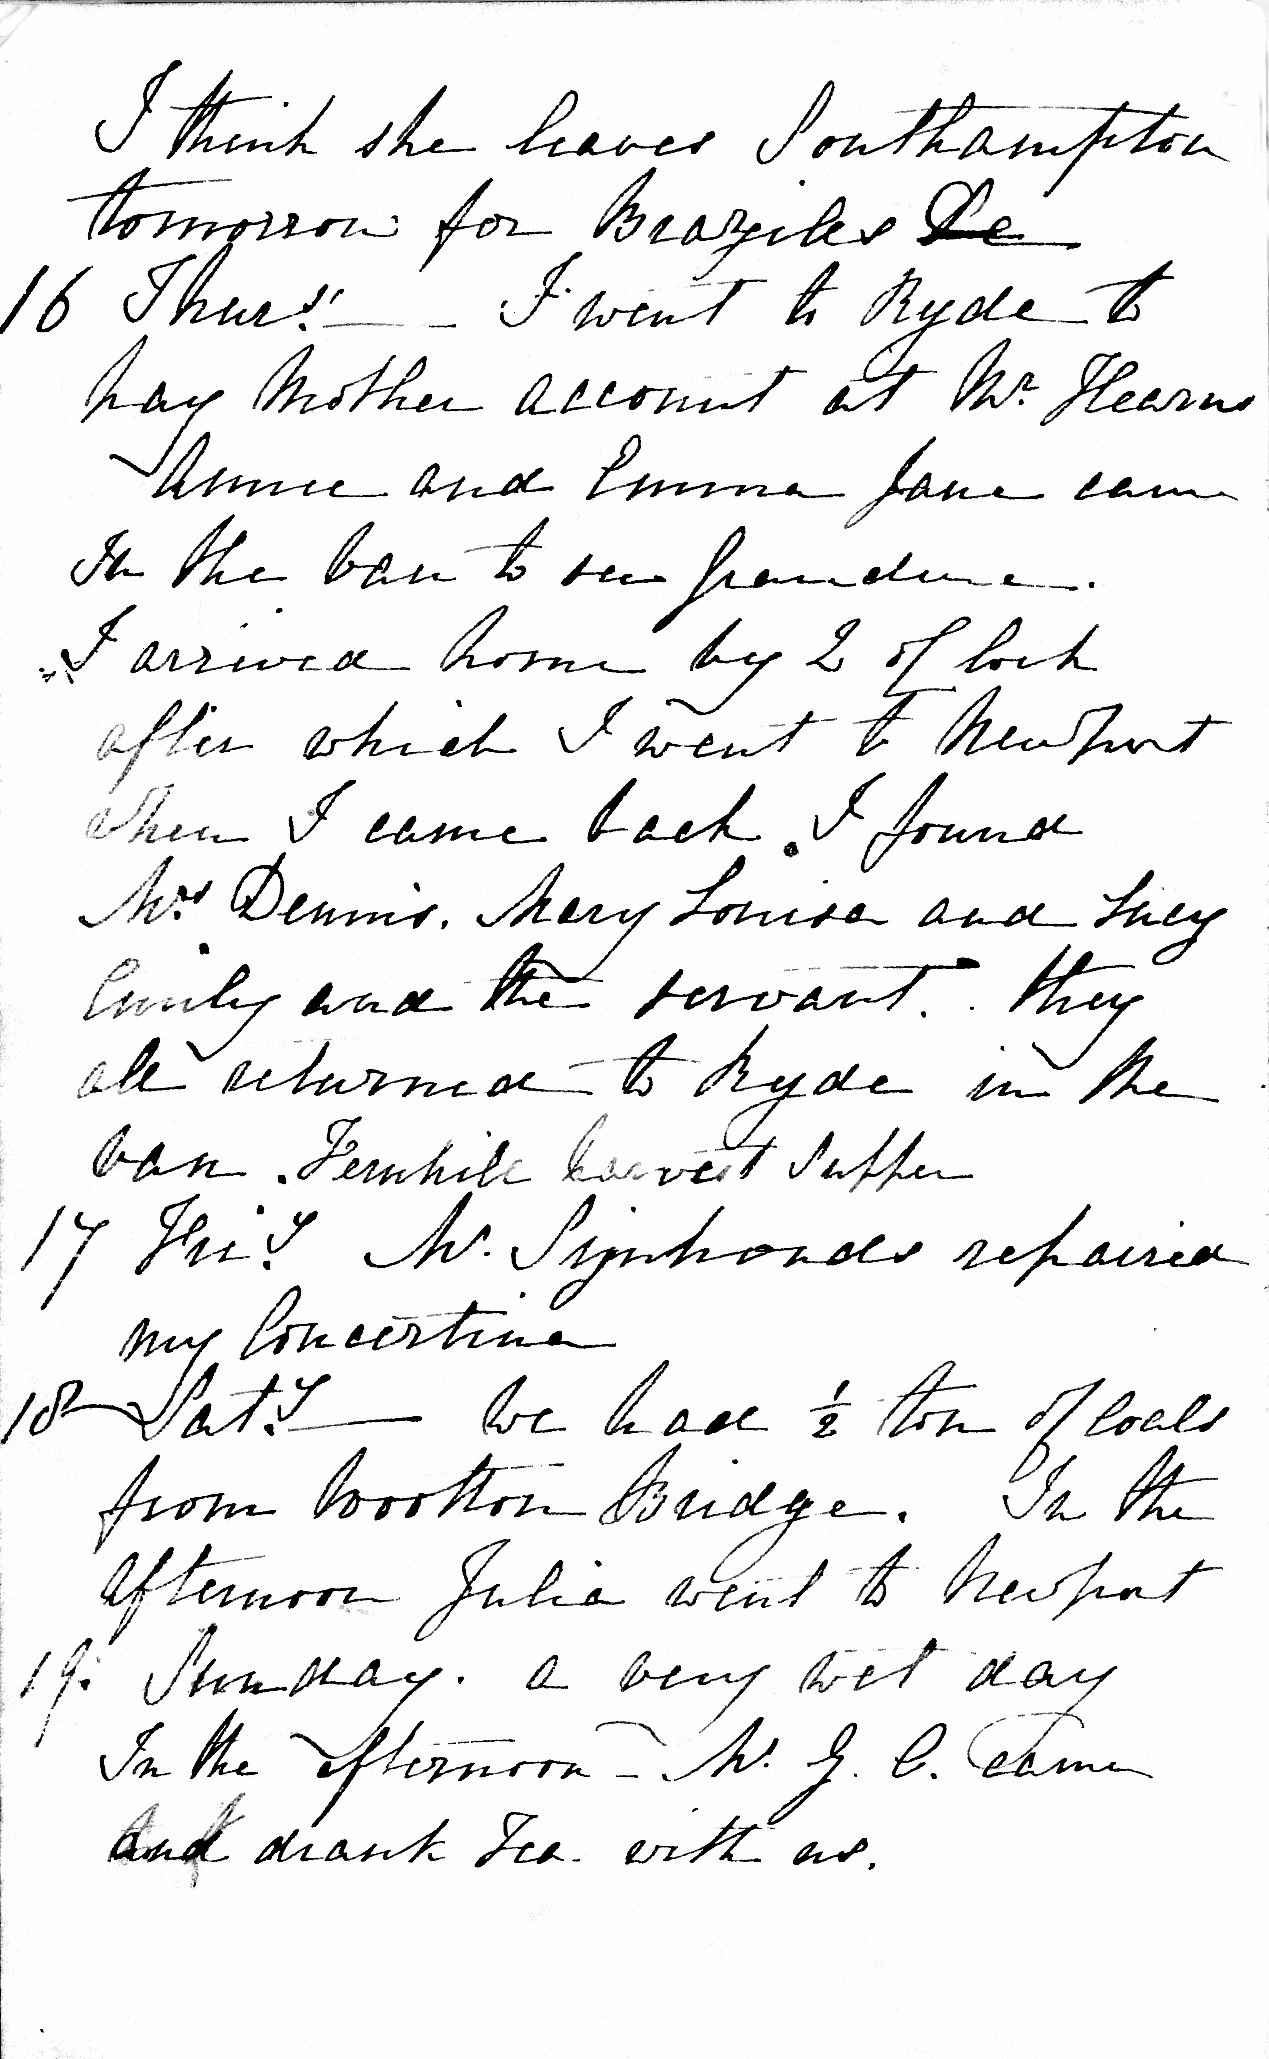 I think she leaves Southampton
tomorrow for Braziles De
16 Thurs. — I went to Ryde to
pay Mother account at Mr. Hearns
Annie and Emma Jane came
In the van to see Grandma.
I arrived home by 2 of lock
after which I went to Newport
When I came back. I found
Mrs Dennis. Mary Louisa and Lucy
Emily and the servant. they
all returned to Ryde in the
van. Fernhill harvest Supper
17 Fri.y Mr. Symhonds repaired
my Concertina
18 Sat.y — We had ½ ton of Coals
from Wootton Bridge. In the
afternoon Julia went to Newport
19. Sunday. a very wet day
In the afternoon - Mr. G. C. came
and drank Tea with us.